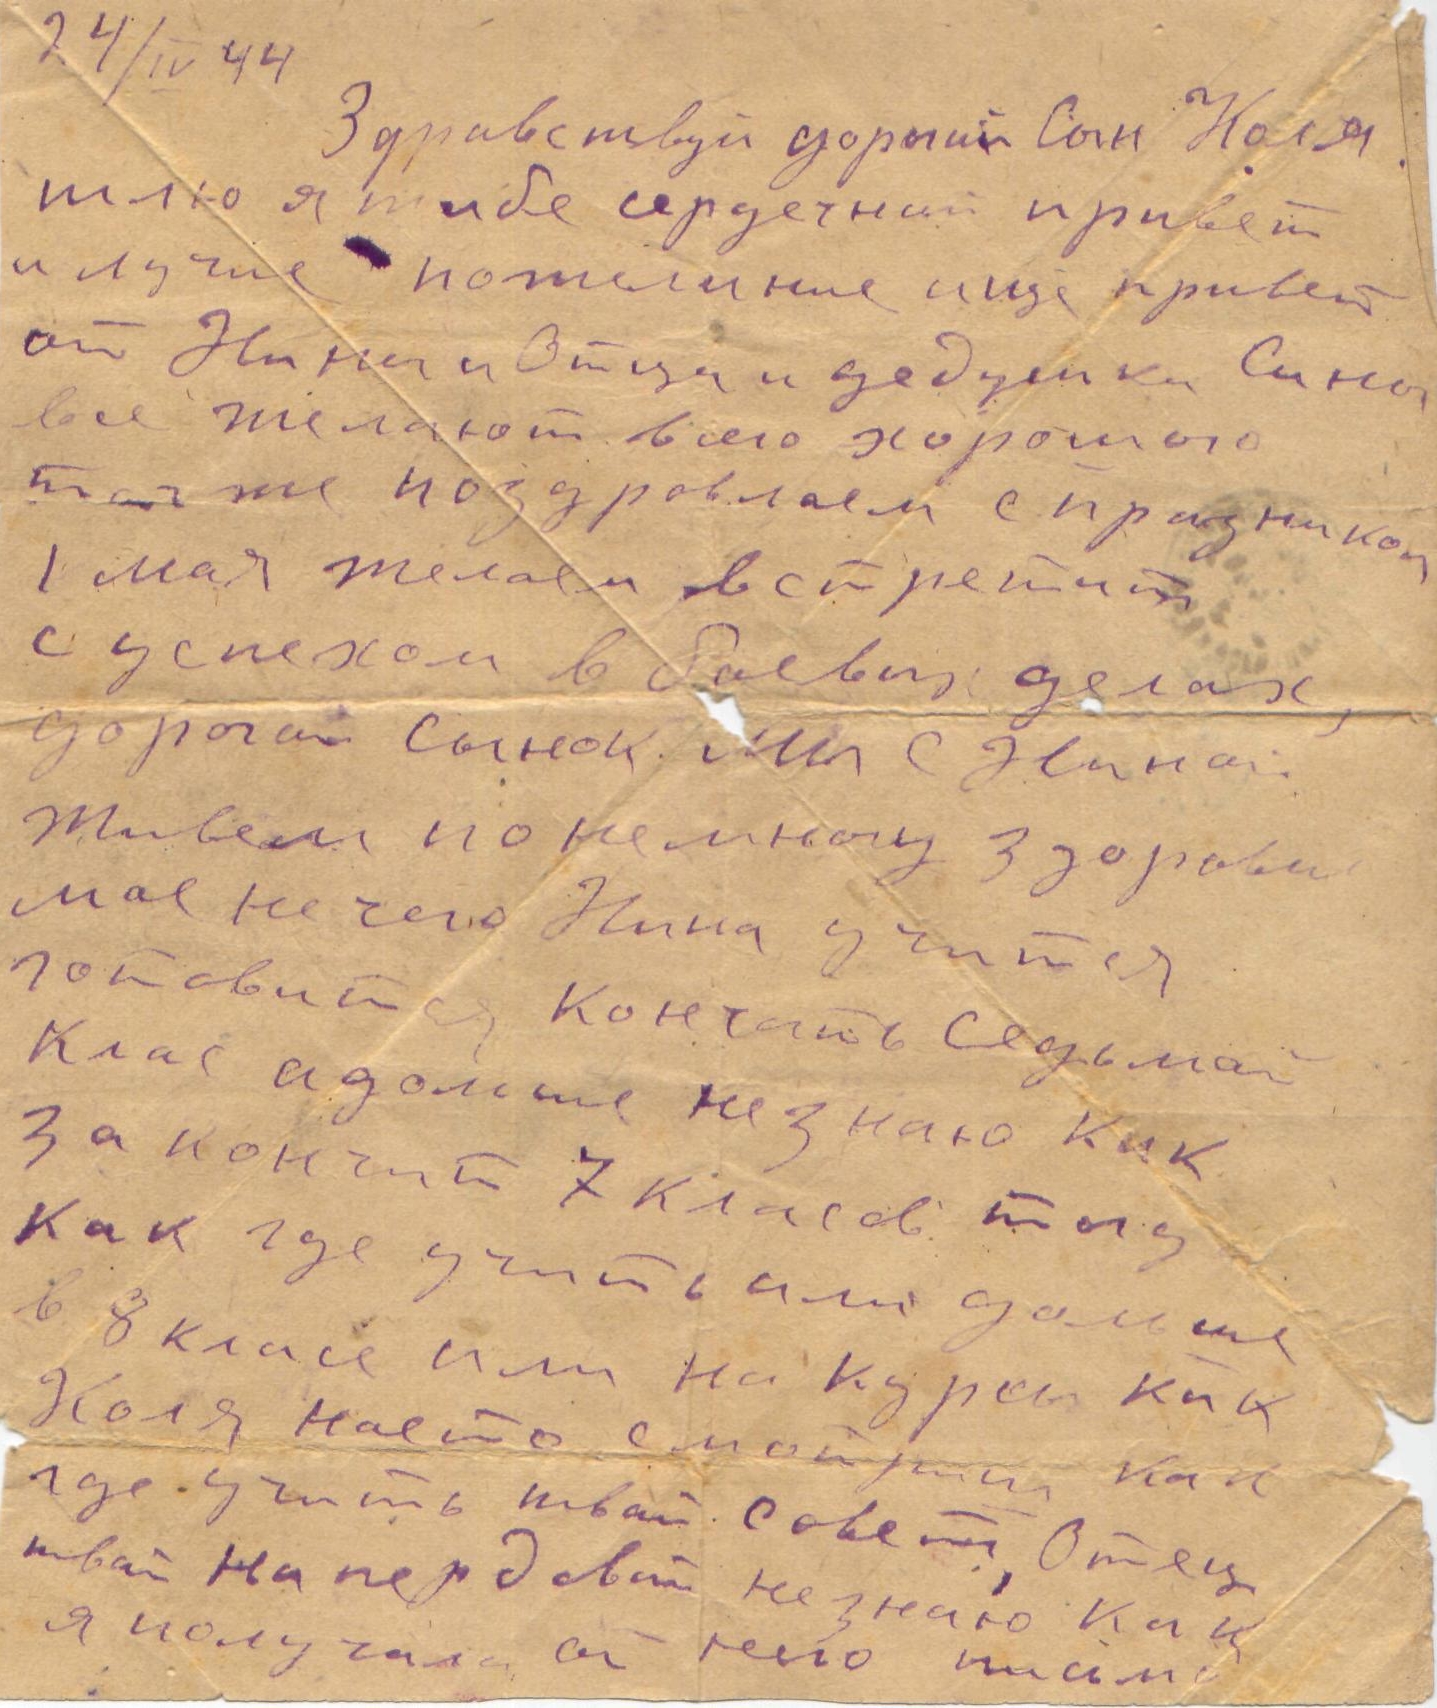 24/IV 44
Здравствуй дорогой Сын Коля.
шлю я тибе сердечный привет
и лучие пожелиние ище привет
от Нины и Отца и дедушки Сины
все желают всего хорошого
так же поздровлаем с празником
1 мая желаем встретит
с успехом в боевых делах,
дорогой сынок мы с Ниной
живем понемногу здоровие
мое нечего Нина учится
готовится кончать Седьмой
Клас а дольше не знаю как
закончит 7 класов тогд
как где учить или дольше
в 8 класе или на курсы как
Коля насто смотриш как
где учить твой совет, Отец
твой на передовой незнаю как
я получила от него письмо